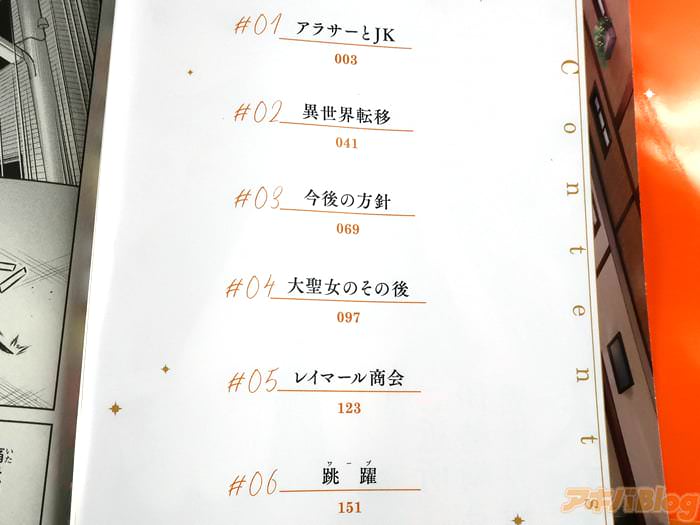 #01 アラサーとJK
003
#02 異世界転移
041
#03 今後の方針
069
#04 大聖女のその後
097
#05 レイマール商会
123
ワープ
#06 跳躍
151
Contents
いた
アキバBlog